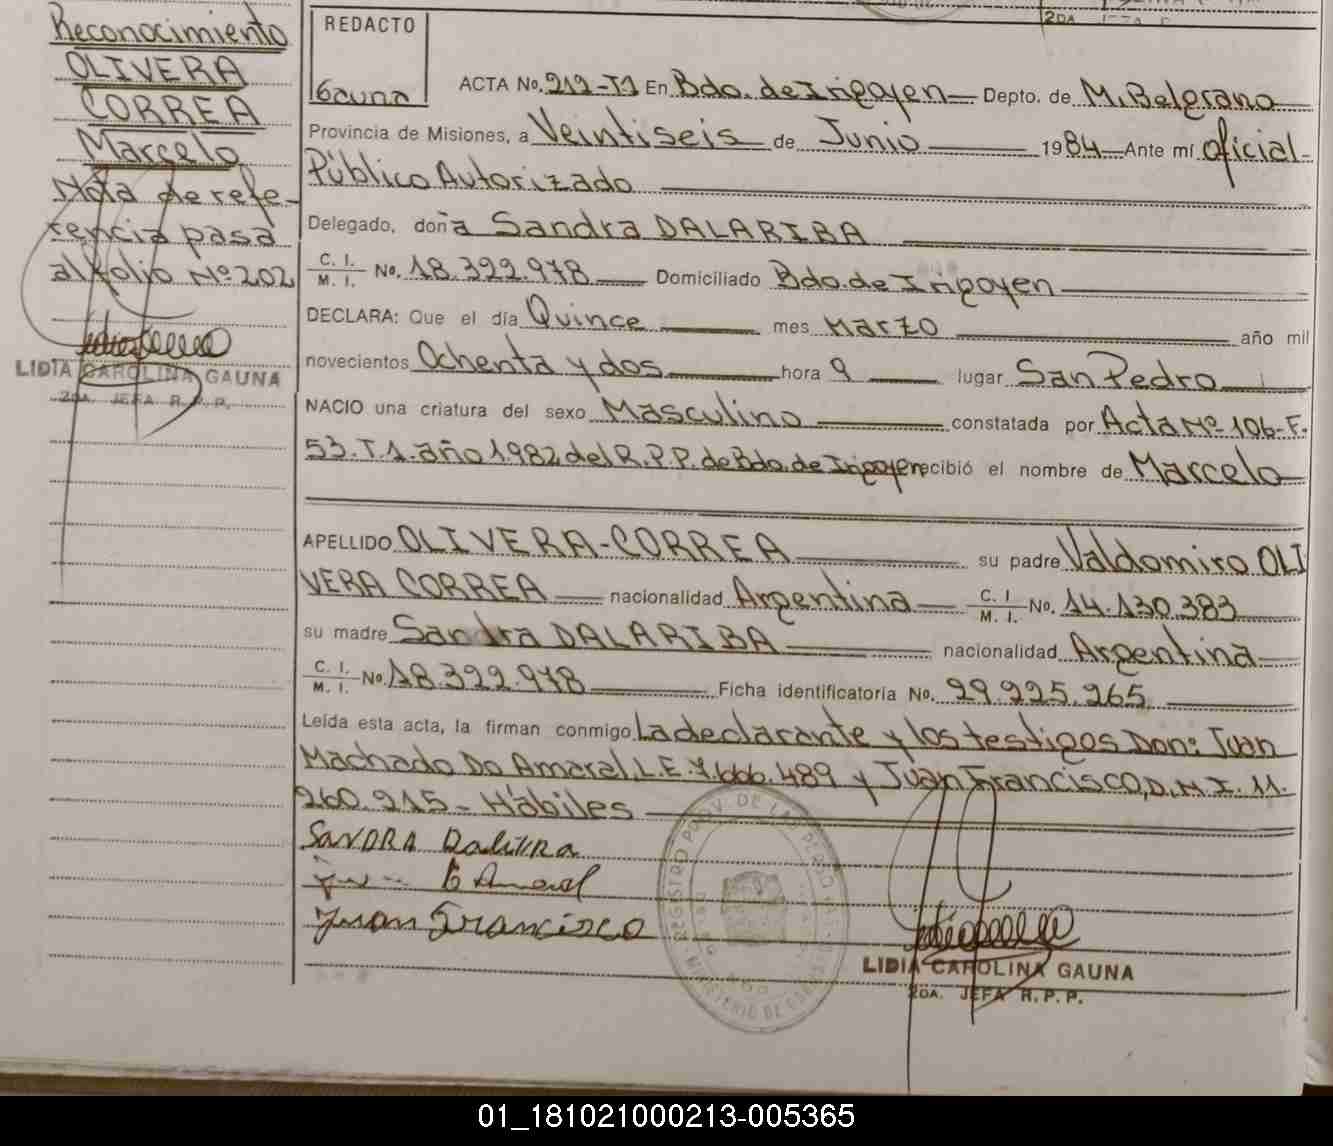 Reconocimiento
OLIVERA
CORREA
Marcelo
Nota de refe-
rencia pasa
al folio Nº 202
LIDIA CAROLINA GAUNA
2DA. JEFA R. P. P.
REDACTO
Gauna
ACTA No. 212-T1 En Bdo. de Irigoyen Depto. de M. Belgrano
Provincia de Misiones, a Veintiseis de Junio 1984 Ante mí oficial
Público Autorizado
Delegado, doña Sandra DALARIBA
C. I. / M. I. No. 18.322.978 Domiciliado Bdo. de Irigoyen
DECLARA: Que el día Quince mes Marzo año mil
novecientos Ochenta y dos hora 9 lugar San Pedro
NACIO una criatura del sexo Masculino constatada por Acta Nº 106-F.
53. T.1. año 1982 del R.P.P. de Bdo. de Irigoyen recibió el nombre de Marcelo
APELLIDO OLIVERA-CORREA su padre Valdomiro OLI
VERA CORREA nacionalidad Argentina C. I / M. I. No. 14.130.383
su madre Sandra DALARIBA nacionalidad Argentina
C. I. / M. I. No. 18.322.978 Ficha identificatoria No. 29.225.265
Leída esta acta, la firman conmigo La declarante y los testigos Don: Juan
Machado Do Amaral L.E. 7.666.489 y Juan Francisco, D.N.I. 11.
260.215- Hábiles
SANDRA
Amaral
Juan Francisco
REGISTRO PROV. DE LAS PERSONAS
MINISTERIO DE GOBIERNO
LIDIA CAROLINA GAUNA
2DA. JEFA R. P. P.
01_181021000213-005365